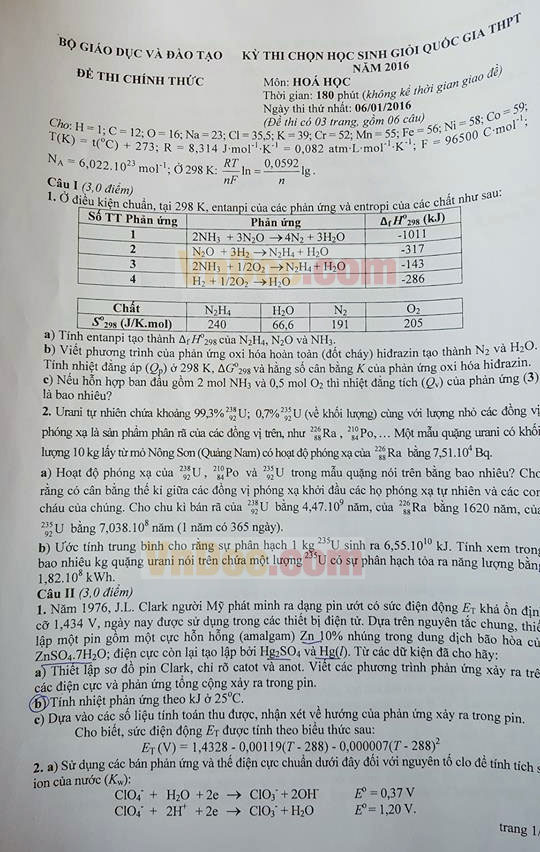 BỘ GIÁO DỤC VÀ ĐÀO TẠO
KỲ THI CHỌN HỌC SINH GIỎI QUỐC GIA THPT
NĂM 2016
ĐỀ THI CHÍNH THỨC
Môn: HOÁ HỌC
Thời gian: 180 phút (không kể thời gian giao đề)
Ngày thi thứ nhất: 06/01/2016
(Đề thi có 03 trang, gồm 06 câu)
Cho: H = 1; C = 12; O = 16; Na = 23; Cl = 35,5; K = 39; Cr = 52; Mn = 55; Fe = 56; Ni = 58; Co = 59;
T(K) = t(°C) + 273; R = 8,314 J·mol⁻¹·K⁻¹ = 0,082 atm·L·mol⁻¹·K⁻¹; F = 96500 C·mol⁻¹;
N_A = 6,022.10²³ mol⁻¹; Ở 298 K: RT/nF ln = 0,0592/n lg .
Câu I (3,0 điểm)
1. Ở điều kiện chuẩn, tại 298 K, entanpi của các phản ứng và entropi của các chất như sau:
Số TT Phản ứng | Phản ứng | ΔrH°298 (kJ)
1 | 2NH3 + 3N2O → 4N2 + 3H2O | -1011
2 | N2O + 3H2 → N2H4 + H2O | -317
3 | 2NH3 + 1/2O2 → N2H4 + H2O | -143
4 | H2 + 1/2O2 → H2O | -286
Chất | N2H4 | H2O | N2 | O2
S°298 (J/K.mol) | 240 | 66,6 | 191 | 205
a) Tính entanpi tạo thành ΔfH°298 của N2H4, N2O và NH3.
b) Viết phương trình của phản ứng oxi hóa hoàn toàn (đốt cháy) hiđrazin tạo thành N2 và H2O.
Tính nhiệt đẳng áp (Qp) ở 298 K, ΔG°298 và hằng số cân bằng K của phản ứng oxi hóa hiđrazin.
c) Nếu hỗn hợp ban đầu gồm 2 mol NH3 và 0,5 mol O2 thì nhiệt đẳng tích (Qv) của phản ứng (3)
là bao nhiêu?
2. Urani tự nhiên chứa khoảng 99,3% ²³⁸₉₂U; 0,7% ²³⁵₉₂U (về khối lượng) cùng với lượng nhỏ các đồng vị
phóng xạ là sản phẩm phân rã của các đồng vị trên, như ²²⁶₈₈Ra , ²¹⁰₈₄Po, … Một mẫu quặng urani có khối
lượng 10 kg lấy từ mỏ Nông Sơn (Quảng Nam) có hoạt độ phóng xạ của ²²⁶₈₈Ra bằng 7,51.10⁴ Bq.
a) Hoạt độ phóng xạ của ²³⁸₉₂U , ²¹⁰₈₄Po và ²³⁵₉₂U trong mẫu quặng nói trên bằng bao nhiêu? Cho
rằng có cân bằng thế kỉ giữa các đồng vị phóng xạ khởi đầu các họ phóng xạ tự nhiên và các con
cháu của chúng. Cho chu kì bán rã của ²³⁸₉₂U bằng 4,47.10⁹ năm, của ²²⁶₈₈Ra bằng 1620 năm, của
²³⁵₉₂U bằng 7,038.10⁸ năm (1 năm có 365 ngày).
b) Ước tính trung bình cho rằng sự phân hạch 1 kg ²³⁵U sinh ra 6,55.10¹⁰ kJ. Tính xem trong
bao nhiêu kg quặng urani nói trên chứa một lượng ²³⁵U có sự phân hạch tỏa ra năng lượng bằng
1,82.10⁸ kWh.
VnDoc.com
VnDoc.com
Câu II (3,0 điểm)
1. Năm 1976, J.L. Clark người Mỹ phát minh ra dạng pin ướt có sức điện động E_T khá ổn địn
cỡ 1,434 V, ngày nay được sử dụng trong các thiết bị điện tử. Dựa trên nguyên tắc chung, thiế
lập một pin gồm một cực hỗn hống (amalgam) Zn 10% nhúng trong dung dịch bão hòa củ
ZnSO4.7H2O; điện cực còn lại tạo lập bởi Hg2SO4 và Hg(l). Từ các dữ kiện đã cho hãy:
a) Thiết lập sơ đồ pin Clark, chỉ rõ catot và anot. Viết các phương trình phản ứng xảy ra trê
các điện cực và phản ứng tổng cộng xảy ra trong pin.
b) Tính nhiệt phản ứng theo kJ ở 25°C.
c) Dựa vào các số liệu tính toán thu được, nhận xét về hướng của phản ứng xảy ra trong pin.
Cho biết, sức điện động E_T được tính theo biểu thức sau:
E_T (V) = 1,4328 - 0,00119(T - 288) - 0,000007(T - 288)²
2. a) Sử dụng các bán phản ứng và thế điện cực chuẩn dưới đây đối với nguyên tố clo để tính tích s
ion của nước (Kw):
ClO4⁻ + H2O + 2e → ClO3⁻ + 2OH⁻ E° = 0,37 V
ClO4⁻ + 2H⁺ + 2e → ClO3⁻ + H2O E° = 1,20 V.
trang 1/